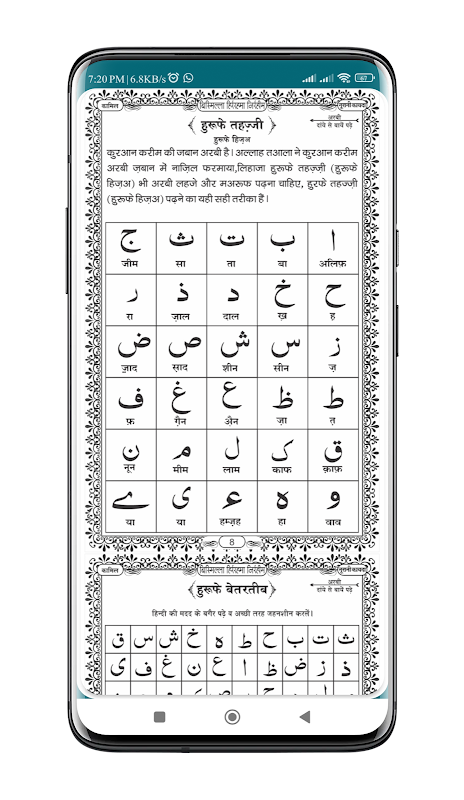 7:20 PM | 6.8KB/s
67
कामिल
बिस्मिल्ला हिर्रहमा निर्रहीम
हुरूफे तहज़्जी
हुरूफे हिज्अ
अरबी
दांये से बायें पढ़े
क़ुरआन करीम की जबान अरबी है। अल्लाह तआला ने कुरआन करीम
अरबी ज़बान मे नाज़िल फरमाया,लिहाजा हुरूफे तहज़्ज़ी (हुरूफे
हिज्अ) भी अरबी लहजे और मअरूफ पढ़ना चाहिए, हुरफे तहज्ज़ी
(हुरूफे हिज्अ) पढ़ने का यही सही तरीका हैं।
ا ب ت ث ج
अलिफ़ बा ता सा जीम
ح خ د ذ ر
ह ख़ दाल ज़ाल रा
ز س ش ص ض
ज़ सीन शीन स़ाद ज़ाद
ط ظ ع غ ف
त़ ज़ा अैन ग़ैन फ़
ق ک ل م ن
क़ाफ़ काफ लाम मीम नून
و ہ ء ی ے
वाव हा हम्ज़ह या या
8
कामिल
बिस्मिल्ला हिर्रहमा निर्रहीम
हुरूफे बेतरतीब
अरबी
दांये से बायें पढ़े
हिन्दी की मदद के बगैर पढ़े व अच्छी तरह जहनशीन करलें।
ث ت ب ح ط ہ خ ش س ق
ذ ز ض ظ ا ع ن غ ف ی